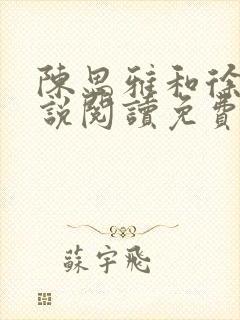 陳思雅和徐
說閱讀免費
蘇宇飛